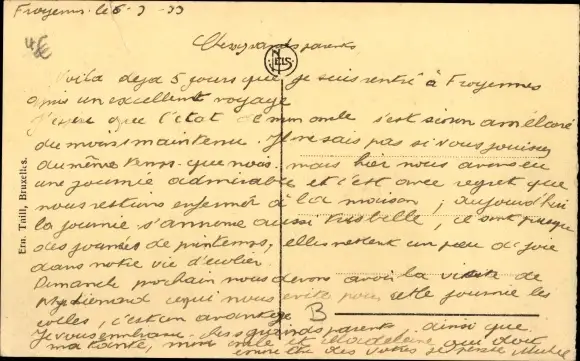 Froyennes le 6-3-33
Chers grands parents
NELS
Voilà deja 5 jours que je suis rentré à Froyennes
après un excellent voyage
J'espère que l'état de mon oncle s'est sinon amélioré
du moins maintenu. Je ne sais pas si vous jouissez
du même temps que nous. mais hier nous avons eu
une journée admirable et c'est avec regret que
nous restions enfermé à la maison, aujourd'hui
la journée s'annonce aussi très belle, ce sont presque
des journées de printemps, elles mettent un peu de joie
dans notre vie d'écolier.
Dimanche prochain nous devons avoir la visite de
ce qui nous évite pour cette journée les
colles, c'est un avantage
B
Je vous embrasse chers grands parents ainsi que
ma tante, mon oncle et Madeleine qui doit
être des vôtres je pense Michel
Ern. Thill, Bruxelles.